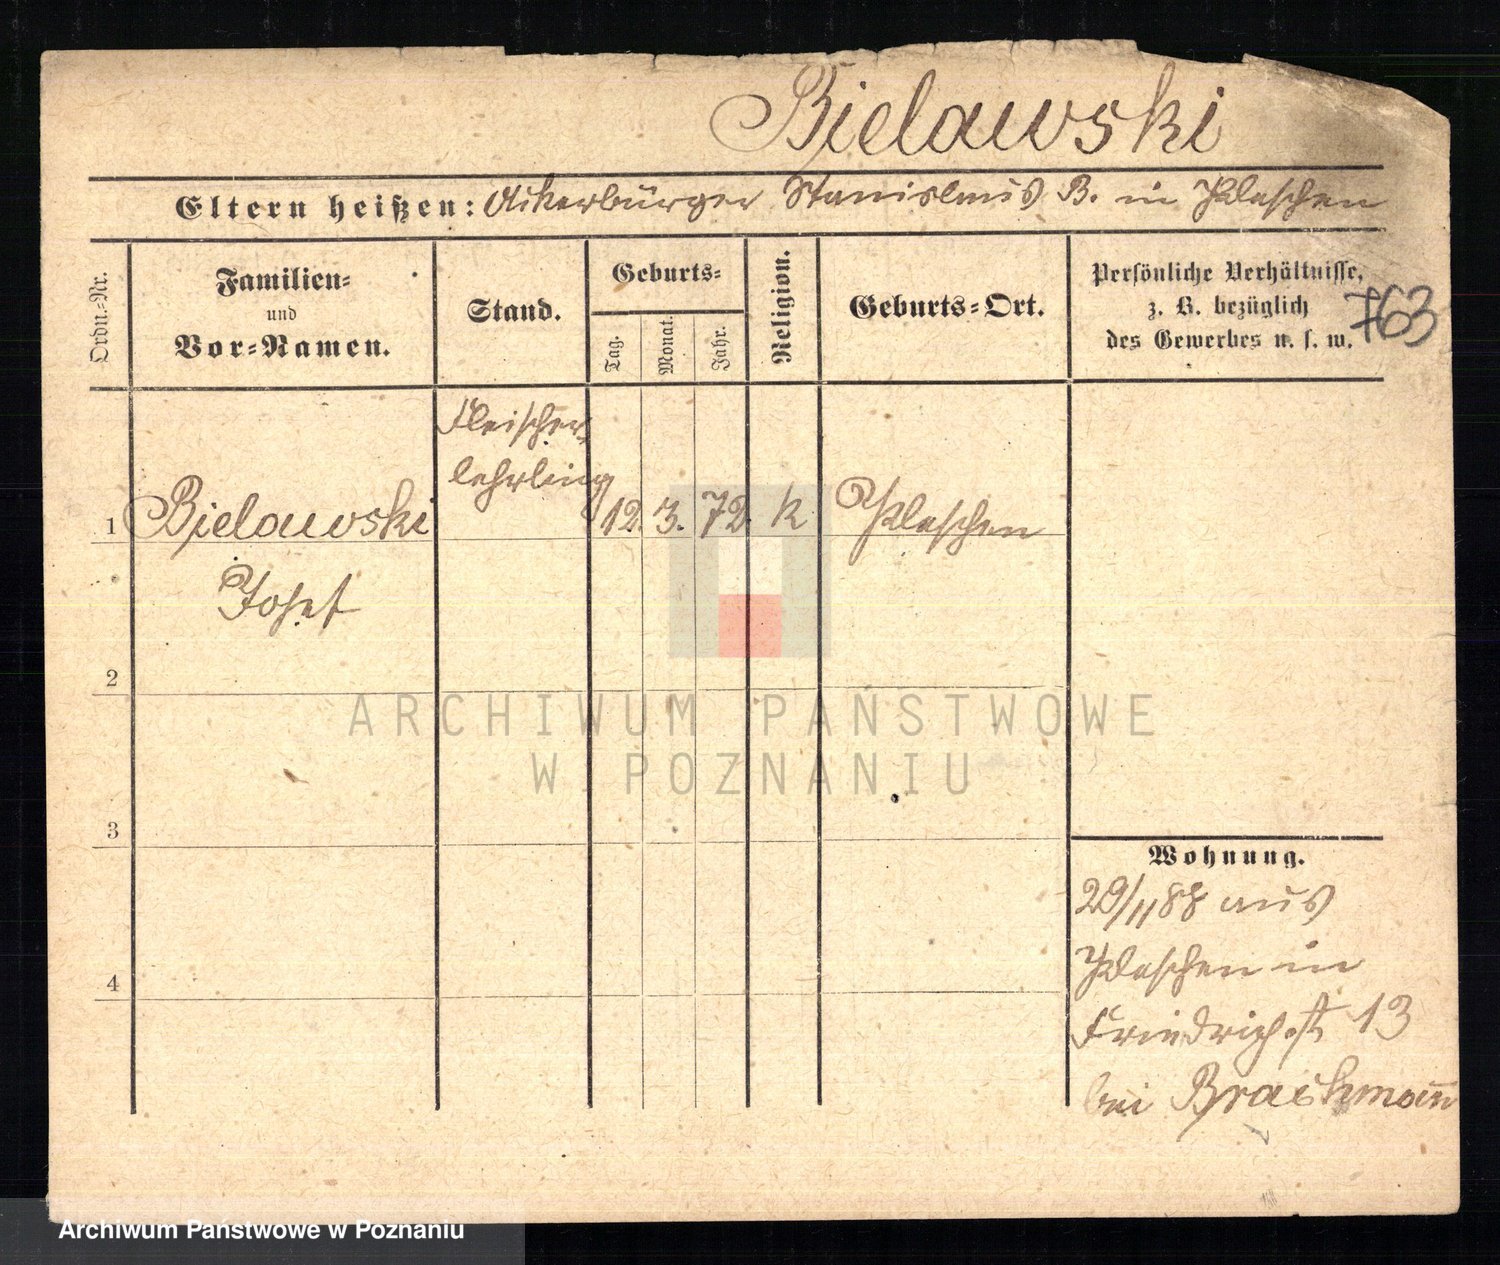 Bielawski
Eltern heißen: Ackerbürger Stanislaus B. in Pleschen
Ordn.-Nr.
Familien-
und
Vor-Namen.
Stand.
Geburts-
Tag.
Monat.
Jahr.
Religion.
Geburts-Ort.
Persönliche Verhältnisse,
z. B. bezüglich
des Gewerbes u. s. w.
763
1
Bielawski
Josef
Fleischer
lehrling
12.
3.
72.
k
Pleschen
2
3
4
Wohnung.
29/11 88 aus
Pleschen in
Friedrichst 13
bei Brackmann
ARCHIWUM PAŃSTWOWE
W POZNANIU
Archiwum Państwowe w Poznaniu